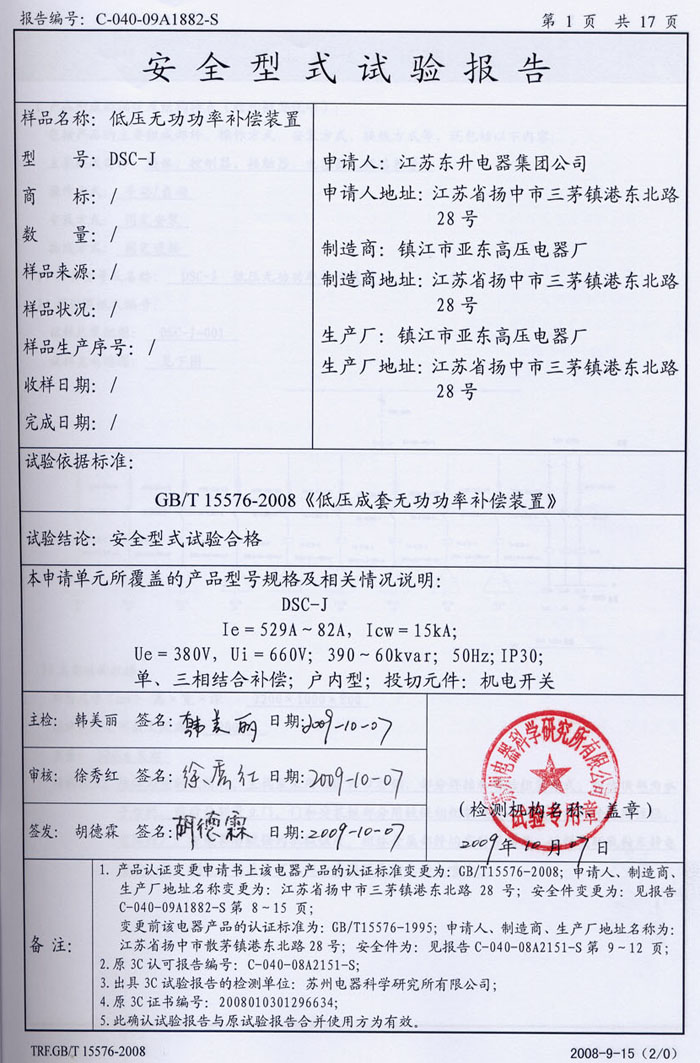 报告编号： C-040-09A1882-S
第 1 页 共 17 页
安全型式试验报告
样品名称：低压无功功率补偿装置
型 号：DSC-J
商 标：/
数 量：/
样品来源：/
样品状况：/
样品生产序号：/
收样日期：/
完成日期：/
申请人：江苏东升电器集团公司
申请人地址：江苏省扬中市三茅镇港东北路
28 号
制造商：镇江市亚东高压电器厂
制造商地址：江苏省扬中市三茅镇港东北路
28 号
生产厂：镇江市亚东高压电器厂
生产厂地址：江苏省扬中市三茅镇港东北路
28 号
试验依据标准：
GB/T 15576-2008《低压成套无功功率补偿装置》
试验结论：安全型式试验合格
本申请单元所覆盖的产品型号规格及相关情况说明：
DSC-J
Ie＝529A～82A，Icw＝15kA；
Ue＝380V，Ui＝660V；390～60kvar；50Hz；IP30；
单、三相结合补偿；户内型；投切元件：机电开关
主检：韩美丽 签名：韩美丽 日期：2009-10-07
审核：徐秀红 签名：徐秀红 日期：2009-10-07
签发：胡德霖 签名：胡德霖 日期：2009-10-07
苏州电器科学研究所有限公司
试验专用章
（检测机构名称）（盖章）
2009年10月07日
备 注：
1. 产品认证变更申请书上该电器产品的认证标准变更为：GB/T15576-2008；申请人、制造商、
生产厂地址名称变更为：江苏省扬中市三茅镇港东北路 28 号；安全件变更为：见报告
C-040-09A1882-S 第 8～15 页；
变更前该电器产品的认证标准为：GB/T15576-1995；申请人、制造商、生产厂地址名称为：
江苏省扬中市散茅镇港东北路 28 号；安全件为：见报告 C-040-08A2151-S 第 9～12 页；
2. 原 3C 认可报告编号：C-040-08A2151-S；
3. 出具 3C 试验报告的检测单位：苏州电器科学研究所有限公司；
4. 原 3C 证书编号：2008010301296634；
5. 此确认试验报告与原试验报告合并使用方为有效。
TRF.GB/T 15576-2008
2008-9-15（2/0）